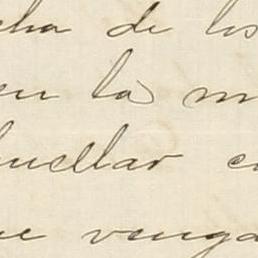 de los
en la m
huellar c
ue venga